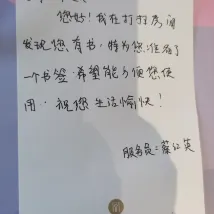 您好！我在打扫房间
发现您有书，特为您准备了
一个书签，希望能方便您使
用，祝您生活愉快！
服务员：蔡江英